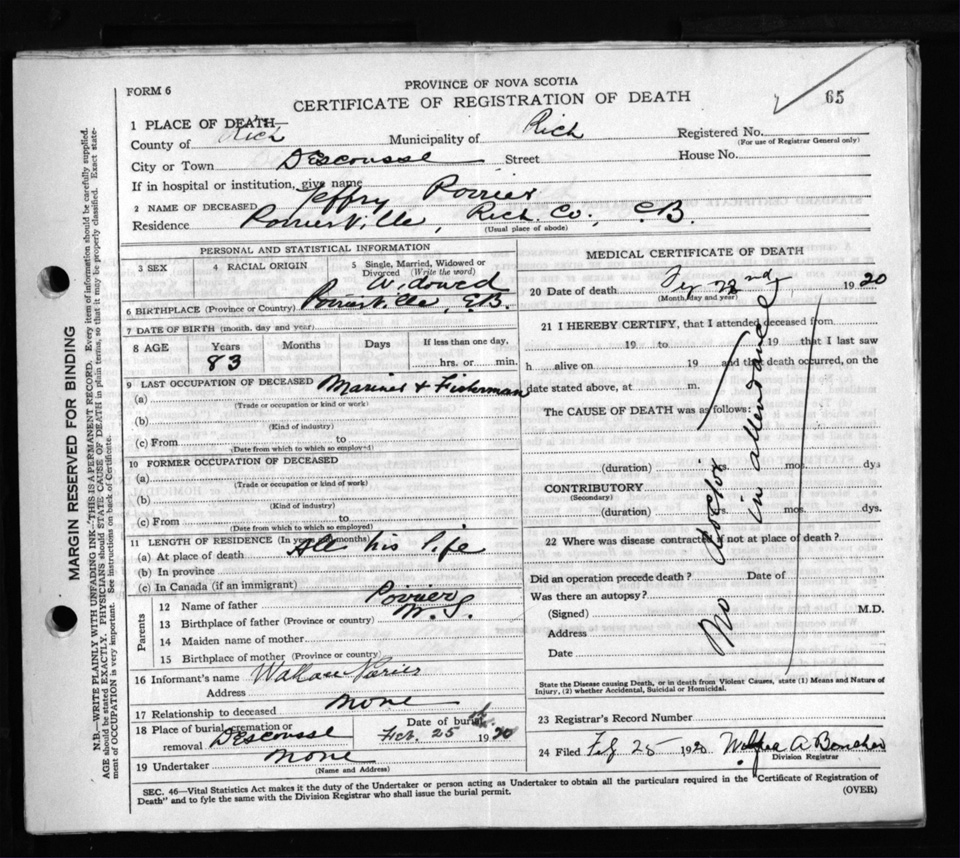 FORM 6
PROVINCE OF NOVA SCOTIA
CERTIFICATE OF REGISTRATION OF DEATH
65
1 PLACE OF DEATH—
County of Rich Municipality of Rich Registered No.
(For use of Registrar General only)
City or Town Descousse Street House No.
If in hospital or institution, give name
2 NAME OF DECEASED Jeffry Poirier
Residence Poirierville, Rich. Co., C.B.
(Usual place of abode)
PERSONAL AND STATISTICAL INFORMATION
3 SEX 4 RACIAL ORIGIN 5 Single, Married, Widowed or Divorced (Write the word)
Widowed
6 BIRTHPLACE (Province or Country) Poirierville, C.B.
7 DATE OF BIRTH (month, day and year)
8 AGE Years Months Days If less than one day,
83 hrs. or min.
9 LAST OCCUPATION OF DECEASED Mariner & Fisherman
(a)
(Trade or occupation or kind of work)
(b)
(Kind of industry)
(c) From to
(Date from which to which so employed)
10 FORMER OCCUPATION OF DECEASED
(a)
(Trade or occupation or kind of work)
(b)
(Kind of industry)
(c) From to
(Date from which to which so employed)
11 LENGTH OF RESIDENCE (In years and months)
(a) At place of death All his life
(b) In province
(c) In Canada (if an immigrant)
Parents
12 Name of father Poirier
13 Birthplace of father (Province or country) N.S.
14 Maiden name of mother
15 Birthplace of mother (Province or country)
16 Informant's name Wallace
Address
17 Relationship to deceased None
18 Place of burial, cremation or removal Descousse Date of burial Feb. 25 1920
19 Undertaker None
(Name and Address)
MEDICAL CERTIFICATE OF DEATH
20 Date of death 1920
(Month, day and year)
21 I HEREBY CERTIFY, that I attended deceased from
19 to 19 that I last saw
h alive on 19 and that death occurred, on the
date stated above, at m.
The CAUSE OF DEATH was as follows:
No doctor in attendance
(duration) yrs. mos. dys
CONTRIBUTORY
(Secondary)
(duration) yrs. mos. dys.
22 Where was disease contracted if not at place of death?
Did an operation precede death? Date of
Was there an autopsy?
(Signed) M.D.
Address
Date
State the Disease causing Death, or in death from Violent Causes, state (1) Means and Nature of
Injury, (2) whether Accidental, Suicidal or Homicidal.
23 Registrar's Record Number
24 Filed Feb 25 1920 A Boucher
Division Registrar
SEC. 46—Vital Statistics Act makes it the duty of the Undertaker or person acting as Undertaker to obtain all the particulars required in the "Certificate of Registration of
Death" and to fyle the same with the Division Registrar who shall issue the burial permit.
(OVER)
MARGIN RESERVED FOR BINDING
N.B.—WRITE PLAINLY WITH UNFADING INK—THIS IS A PERMANENT RECORD. Every item of information should be carefully supplied.
AGE should be stated EXACTLY. PHYSICIANS should STATE CAUSE OF DEATH in plain terms, so that it may be properly classified. Exact statement of OCCUPATION is very important. See instructions on back of Certificate.